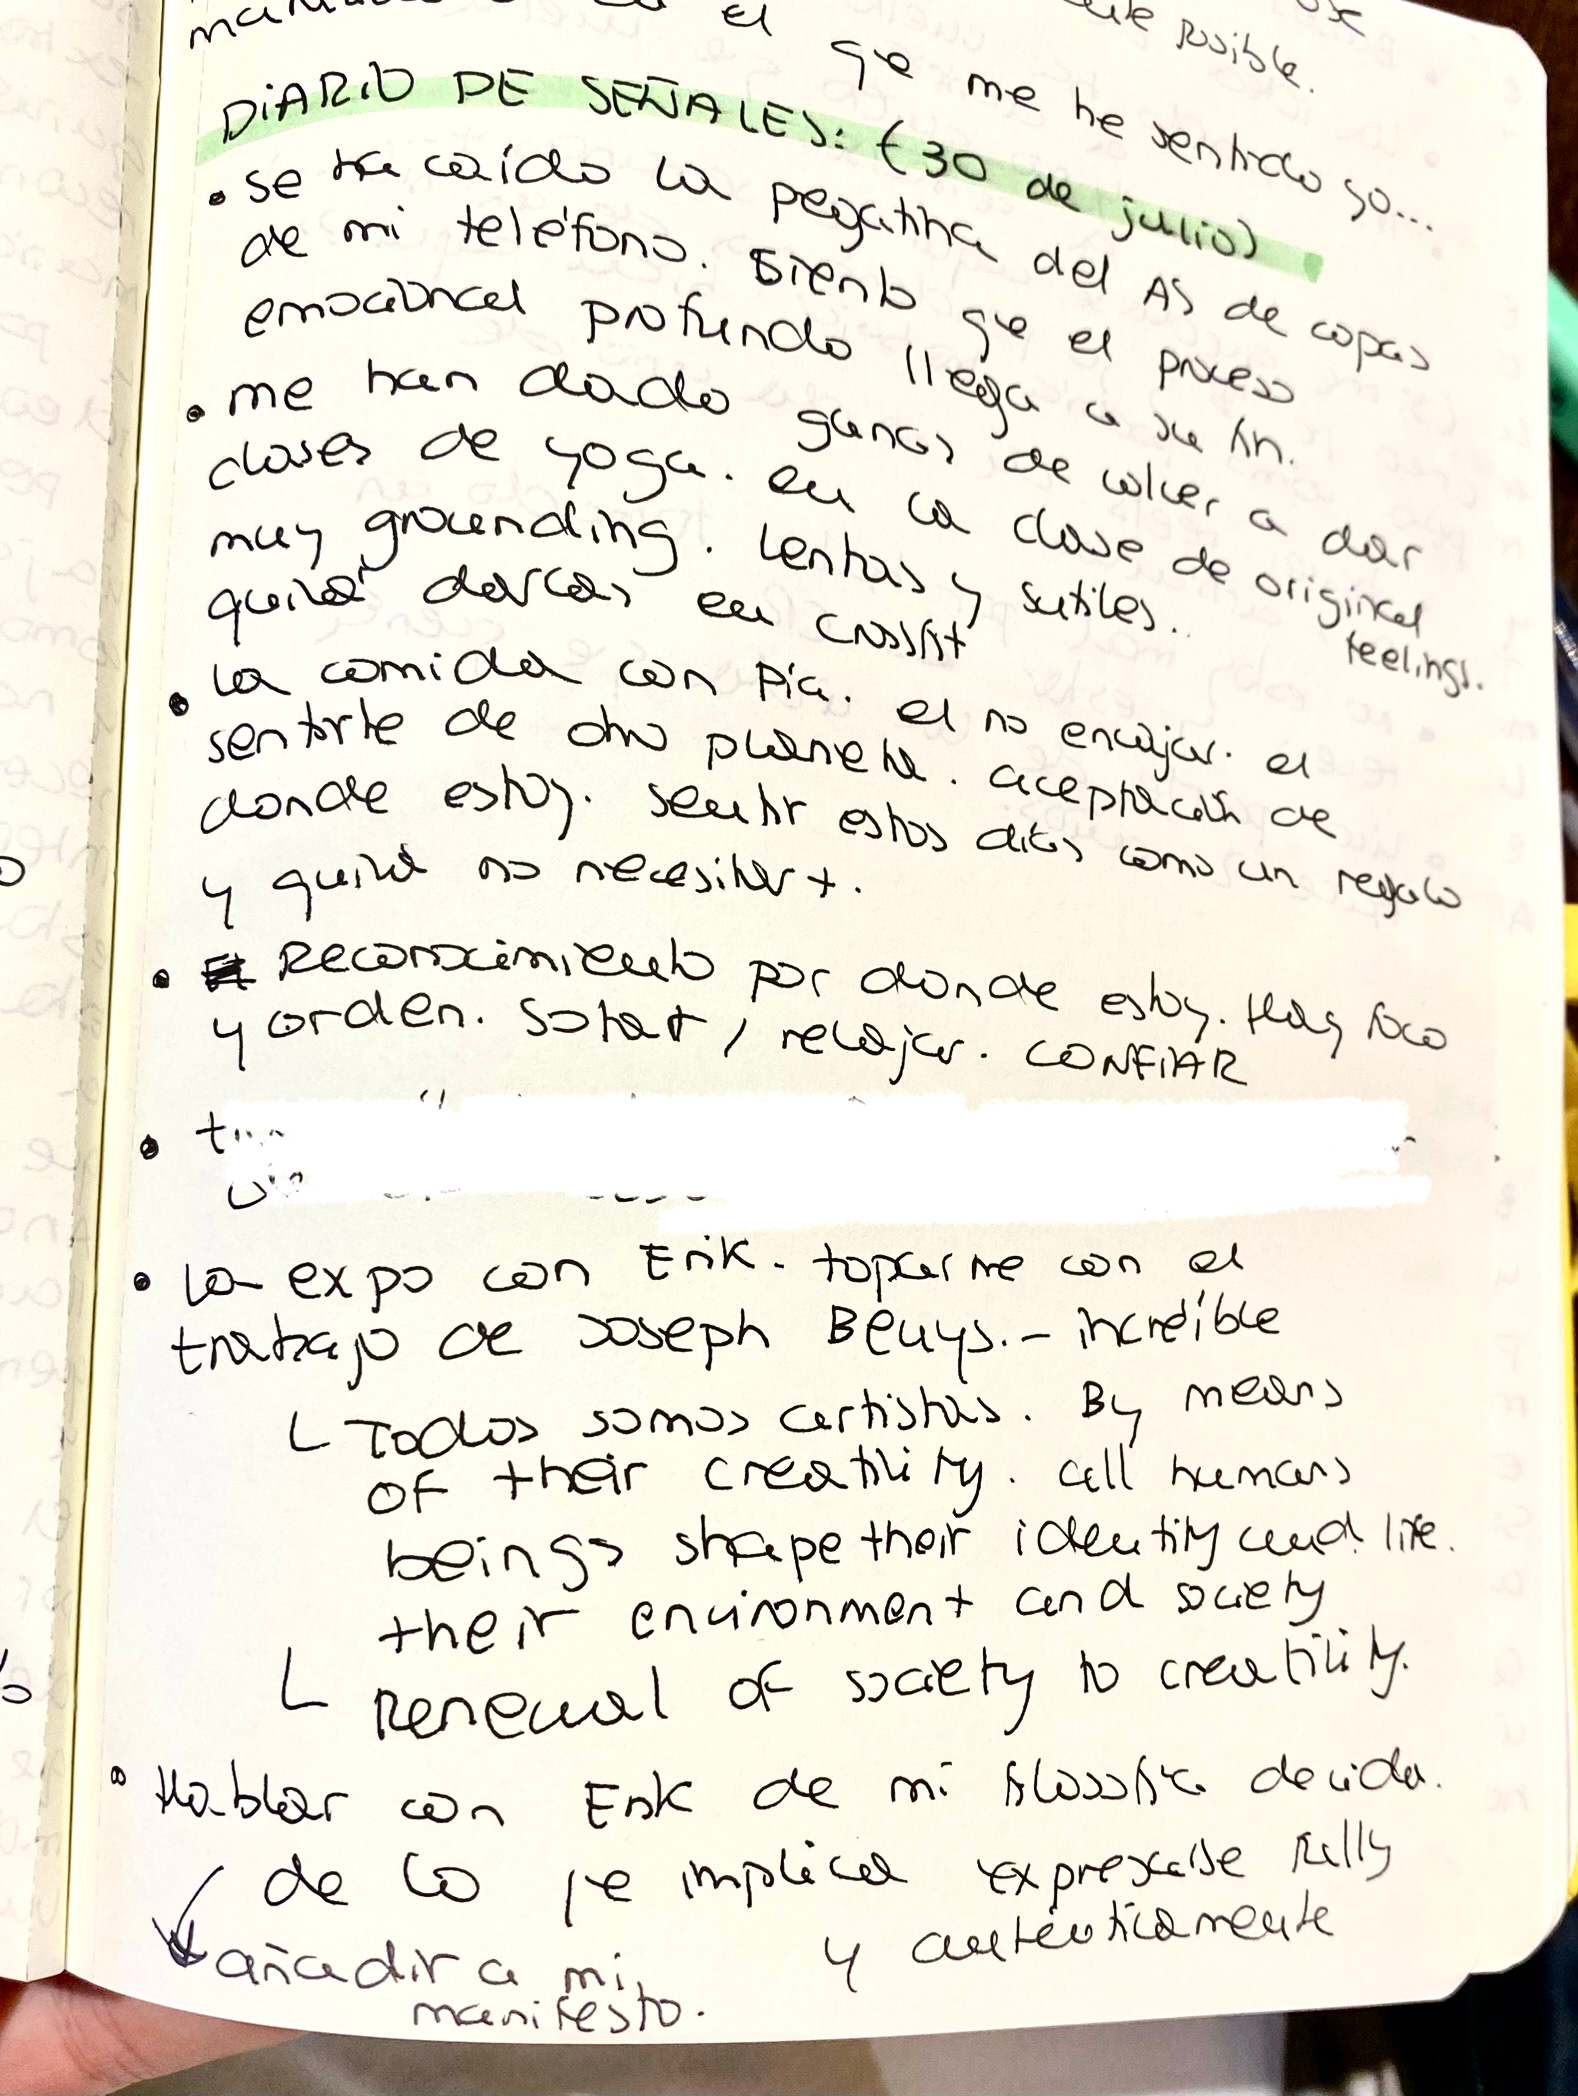 el
posible.
que me he sentido yo...
DIARIO DE SEÑALES: (30 de julio)
• se ha caído la pegatina del AS de copas
de mi teléfono. Siento que el proceso
emocional profundo llega a su fin.
• me han dado ganas de volver a dar
clases de yoga. en la clase de original feelings.
muy grounding. lentas y sutiles..
quizá darlas en crossfit
• la comida con Pía. el no encajar. el
sentirte de otro planeta. aceptación de
donde estoy. sentir estos días como un regalo
y quizá no necesitar +.
• Reconocimiento por donde estoy. Hay foco
y orden. Soltar, relajar. CONFIAR
•
• la expo con Erik. toparme con el
trabajo de Joseph Beuys. - increíble
└ Todos somos artistas. By means
of their creativity. all humans
beings shape their identity and life.
their environment and society
└ Renewal of society to creativity.
• Hablar con Erik de mi filosofía de vida.
de lo que implica expresarse fully
y auténticamente
↓ añadir a mi
manifesto.